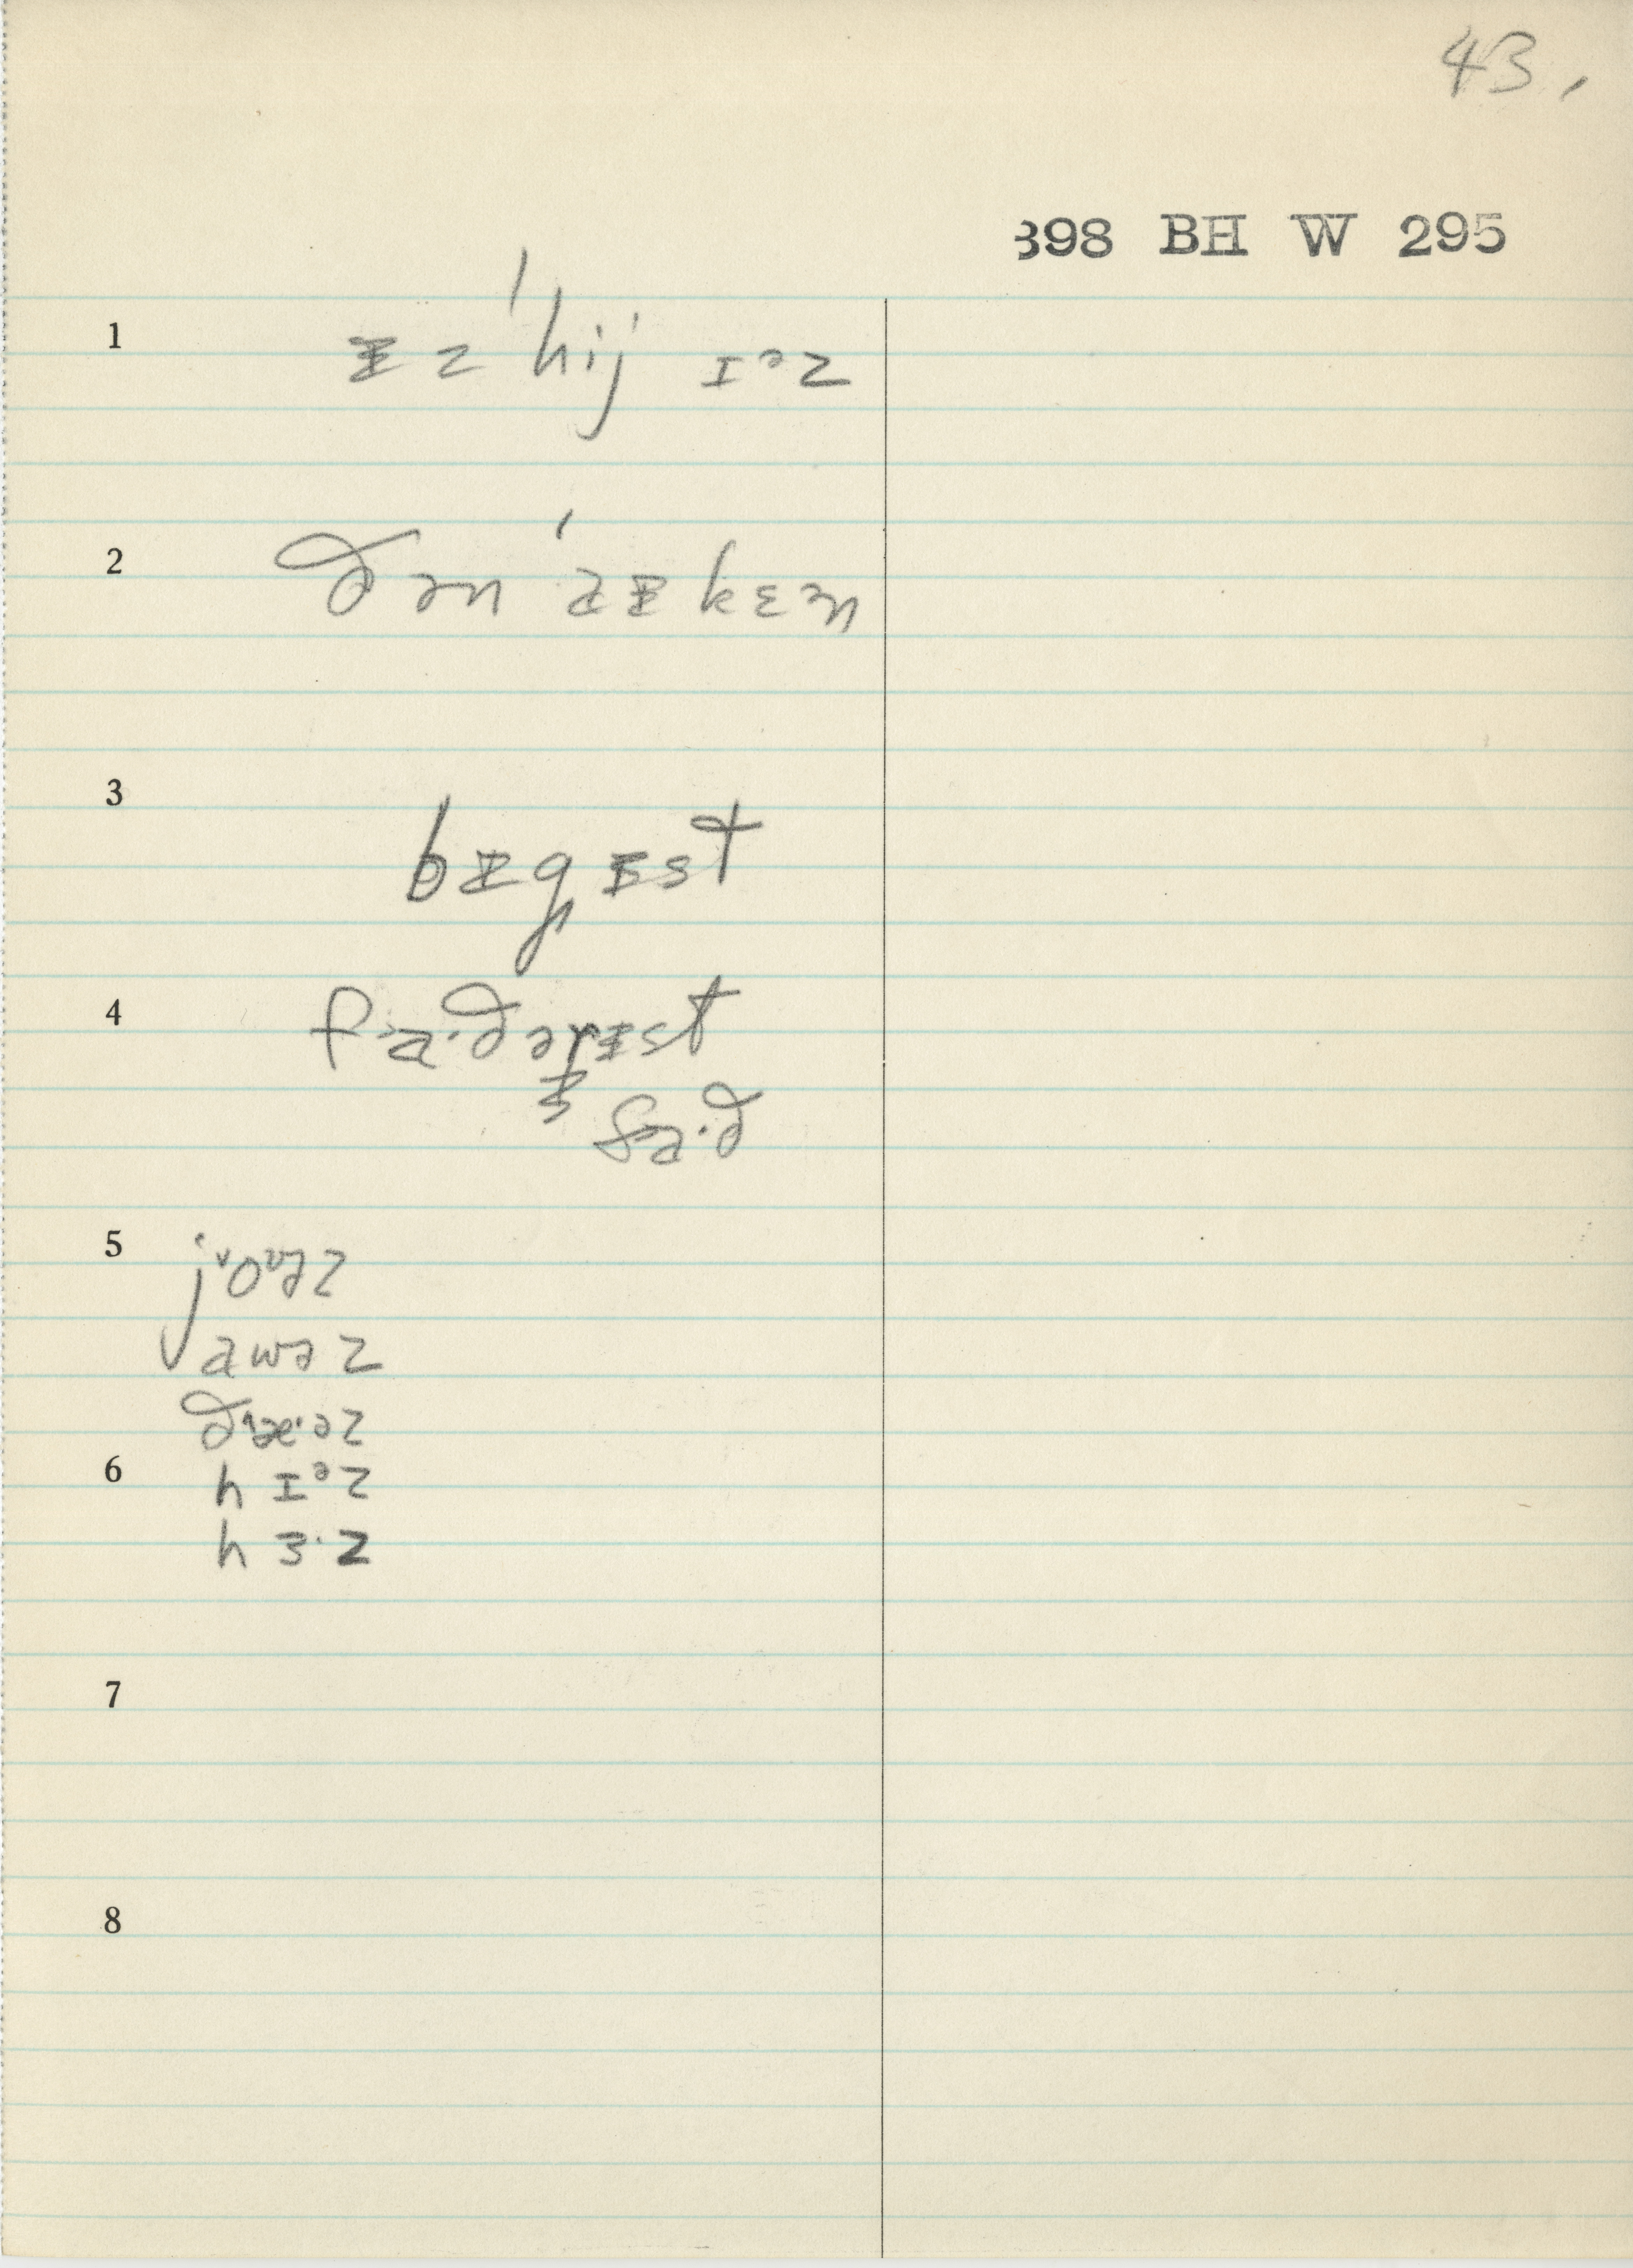 43,
398 BH W 295
1 ᵻz ˈhij ɪᵊz
2 ðən ˈaᵻ kɛᵊn
3 bᵻgᵻst
4 fa·ðərᵻst
fa·ð
5 jᵛoᶷəz
awəz
ðæ·əz
6 hɪᵊz
hɜ·z
7
8